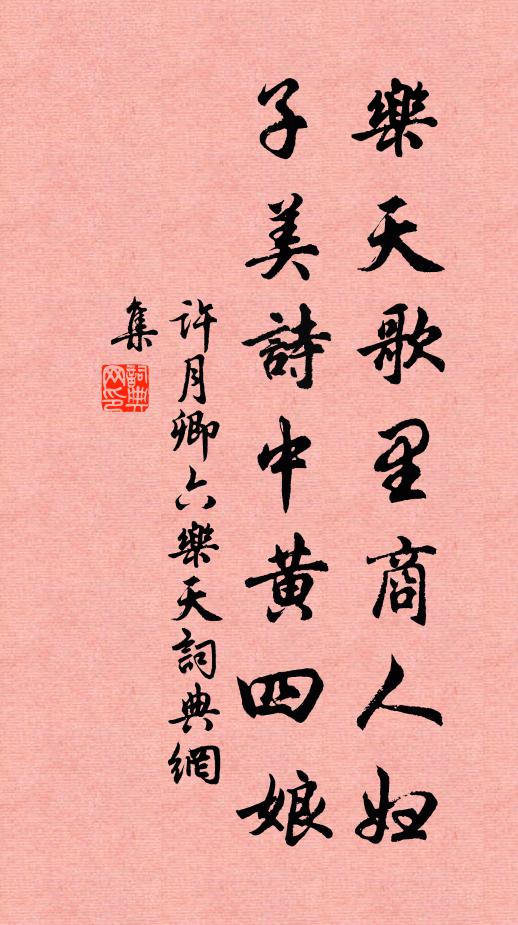 樂天歌里商人妇
子美詩中黄四娘
許月卿六樂天詞典網
集
詞典网印